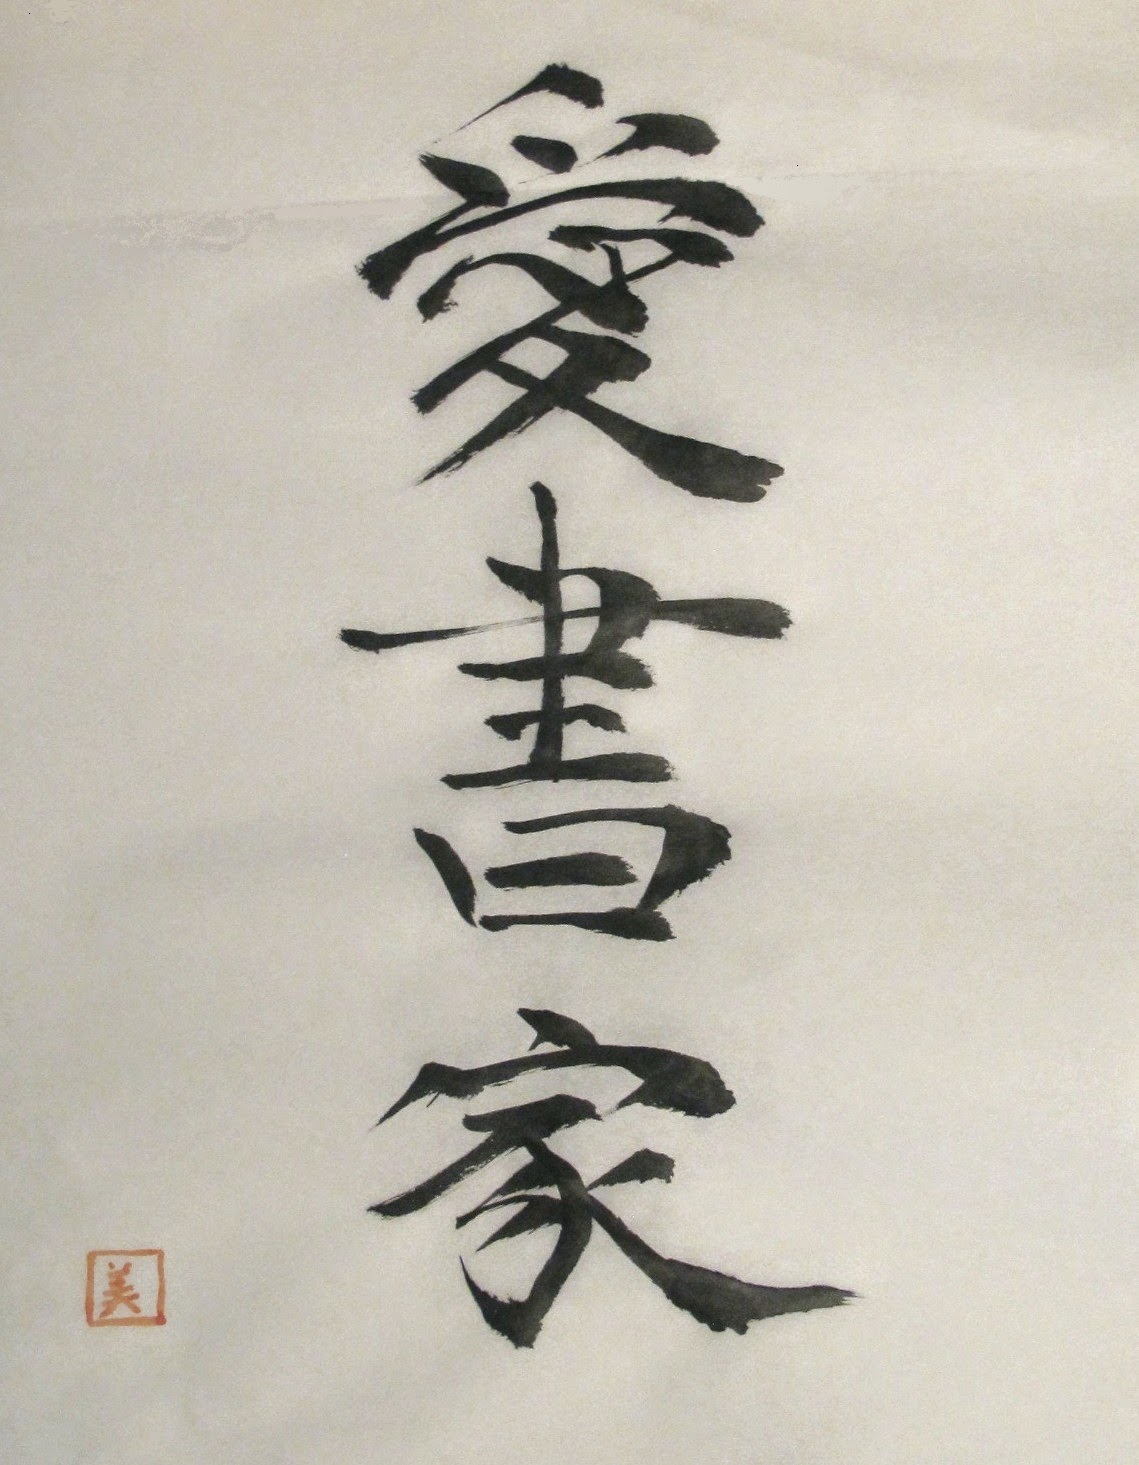 愛書家
美